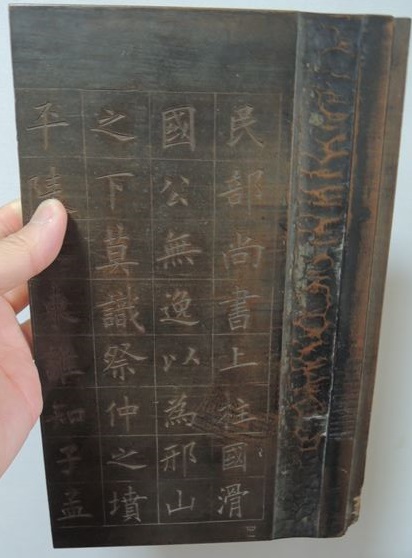 民部尚書上柱國滑
國公無逸以為邢山
之下莫識祭仲之墳
平陵東誰知子孟